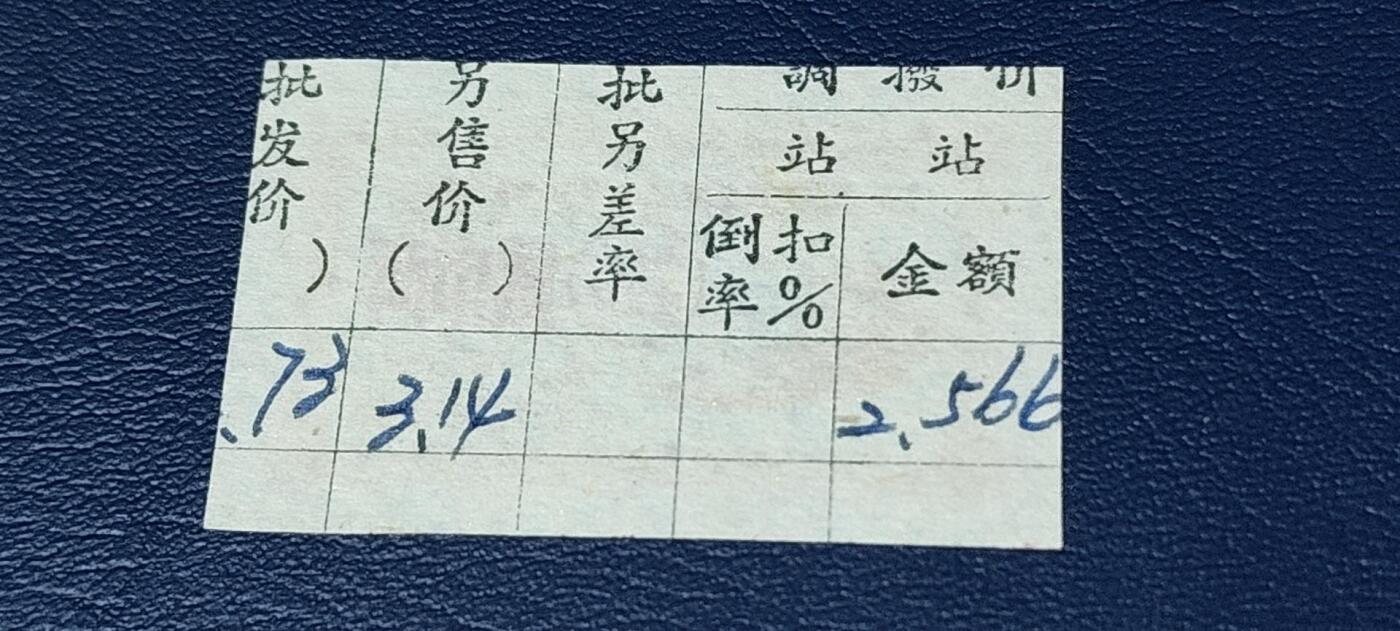 批发价
)
另售价
( )
批另差率
調撥价
站 站
倒扣
率%
金額
.73 3.14 2.566